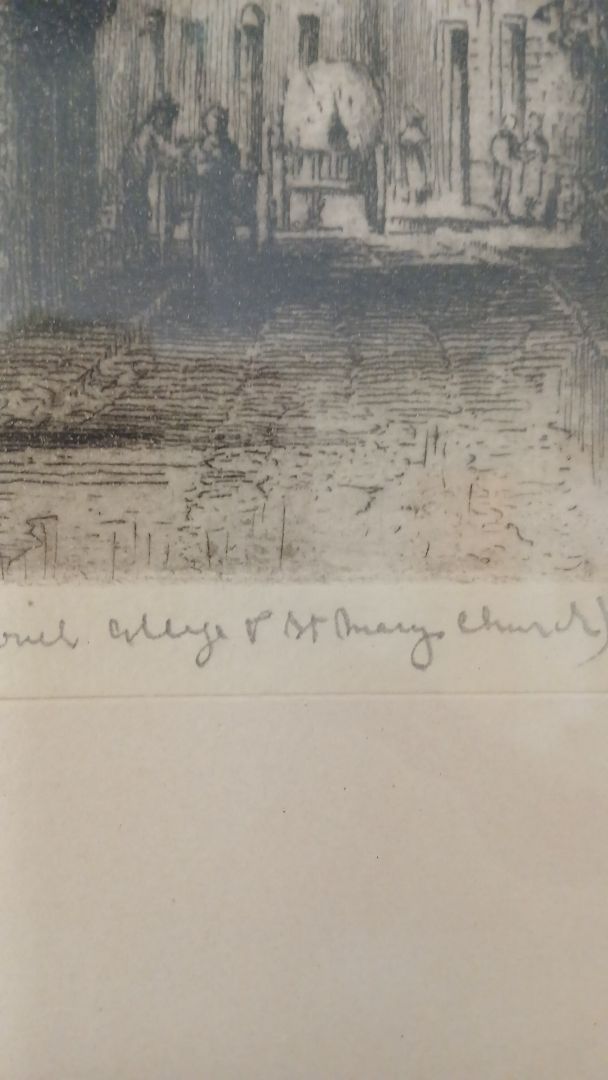 oriel College & St Marys Church)